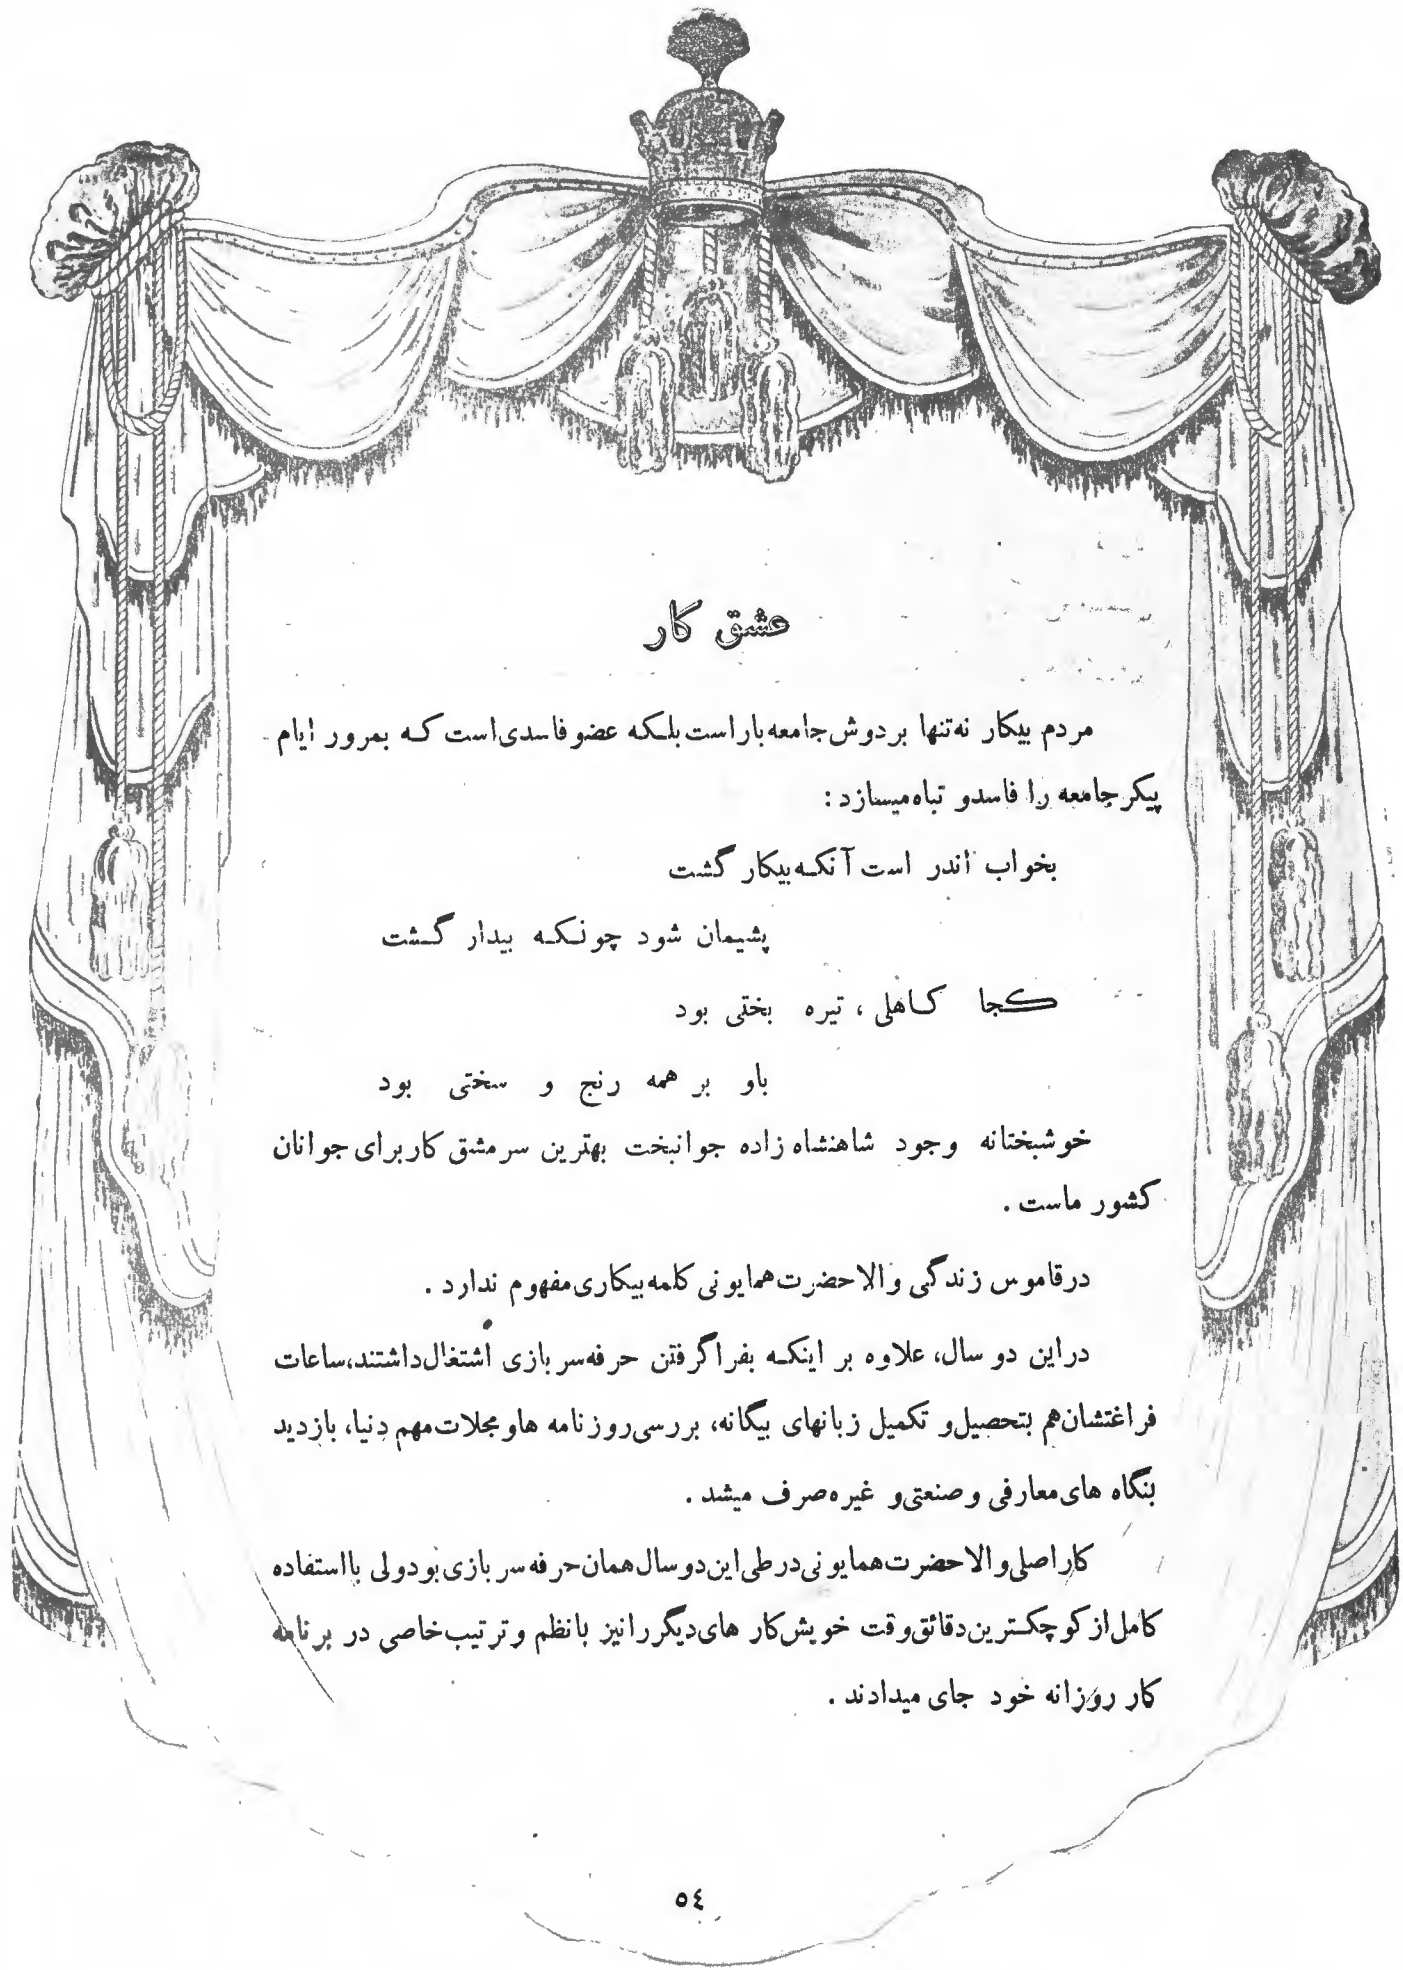 عشق کار
مردم بیکار نه‌تنها بردوش‌جامعه‌باراست‌بلکه عضوفاسدی‌است‌که بمرور ایام
پیکرجامعه را فاسدو تباه‌میسازد :
بخواب اندر است آنکه‌بیکار گشت
پشیمان شود چونکه بیدار گشت
کجا کاهلی ، تیره بختی بود
باو بر همه رنج و سختی بود
خوشبختانه وجود شاهنشاه زاده جوانبخت بهترین سرمشق کاربرای جوانان
کشور ماست .
درقاموس زندگی والاحضرت‌همایونی کلمه‌بیکاری‌مفهوم ندارد .
دراین دو سال، علاوه بر اینکه بفراگرفتن حرفه‌سربازی اشتغال‌داشتند،ساعات
فراغتشان‌هم بتحصیل‌و تکمیل زبانهای بیگانه، بررسی‌روزنامه هاومجلات‌مهم دنیا، بازدید
بنگاه های‌معارفی وصنعتی‌و غیره‌صرف میشد .
کاراصلی‌والاحضرت‌همایونی‌درطی‌این‌دوسال‌همان‌حرفه‌سربازی‌بودولی بااستفاده
کامل‌ازکوچکترین‌دقائق‌وقت خویش‌کار های‌دیگررانیز بانظم وترتیب‌خاصی در برنامه
کار روزانه خود جای میدادند .
٥٤